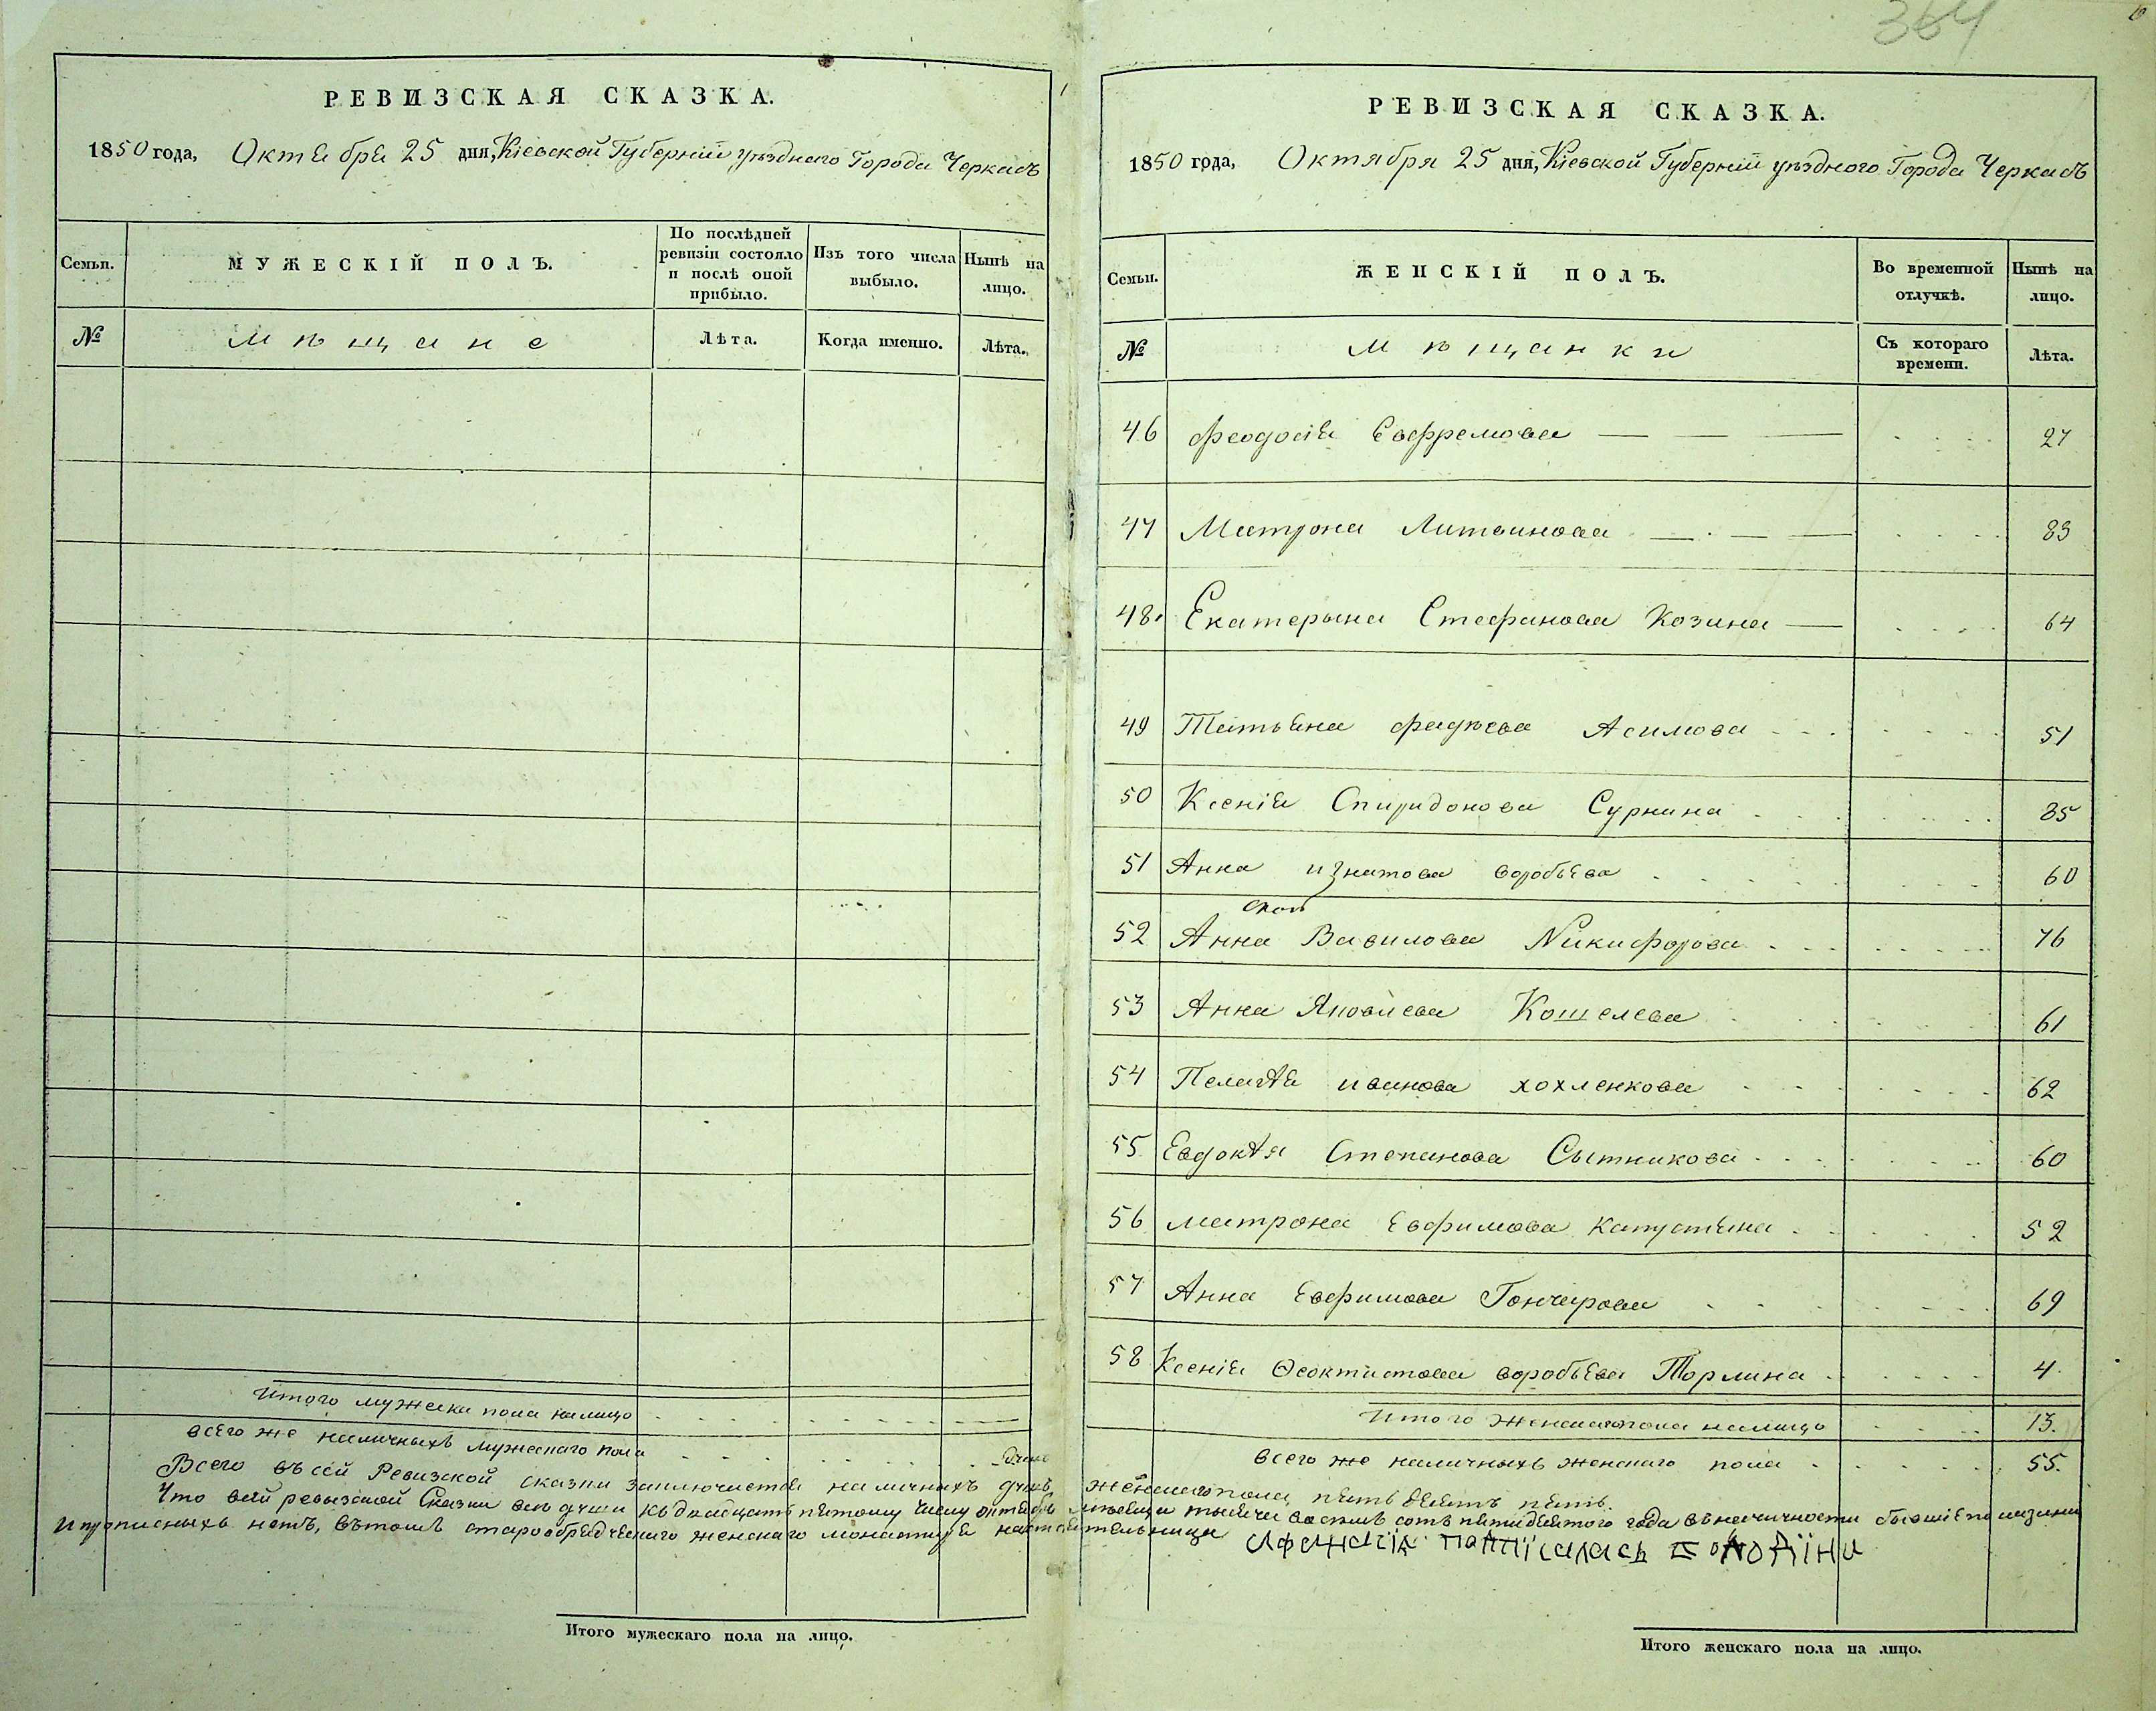 364
РЕВИЗСКАЯ СКАЗКА.
1850 года, Октября 25 дня, Кіевской Губерніи уѣзднаго Города Черкасъ
Семьи.
МУЖЕСКІЙ ПОЛЪ.
По послѣдней ревизіи состояло и послѣ оной прибыло.
Изъ того числа выбыло.
Нынѣ на лицо.
№
Мѣщане
Лѣта.
Когда именно.
Лѣта.
Итого мужеска пола налицо
всего же наличныхъ мужескаго пола
РЕВИЗСКАЯ СКАЗКА.
1850 года, Октября 25 дня, Кіевской Губерніи уѣздного Города Черкасъ
Семьи.
ЖЕНСКІЙ ПОЛЪ.
Во временной отлучкѣ.
Нынѣ на лицо.
№
Мѣщанки
Съ котораго времени.
Лѣта.
46 Феодосія Евфремова 27
47 Матрона Литвинова 83
48. Екатерына Стефанова Козина 64
49 Татьяна Фадѣева Асимова 51
50 Ксенія Спиридонова Суркина 85
51 Анна игнатова воробьева 60
52 Анна Вавилова Никифорова 76
53 Анна Яковлева Кошелева 61
54 Пелагія иванова хохленкова 62
55 Евдокія Степанова Сытникова 60
56 матрона Евфимова капустяна 52
57 Анна Евфимова Гончарова 69
58 Ксенія Ѳеоктистова воробьева Торлина 4
Итого женскаго пола налицо 13.
всего же наличныхъ женскаго пола 55.
Всего въ сей Ревизской сказки заключается наличныхъ душъ, женскаго пола, пятьдесятъ пять.
Что всей ревызской Сказки всѣ души къ двадцать пятому числу октября мѣсяца тысячи восемь сотъ пятидесятого года в наличности
и прописныхъ нетъ, вътомъ старообрядческаго женскаго монастыря настоятельница
Афанасія
Итого мужескаго пола на лицо.
Итого женскаго пола на лицо.